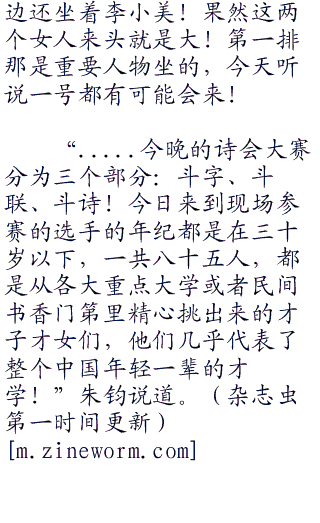 边还坐着李小美！果然这两
个女人来头就是大！第一排
那是重要人物坐的，今天听
说一号都有可能会来！
“.....今晚的诗会大赛
分为三个部分：斗字、斗
联、斗诗！今日来到现场参
赛的选手的年纪都是在三十
岁以下，一共八十五人，都
是从各大重点大学或者民间
书香门第里精心挑出来的才
子才女们，他们几乎代表了
整个中国年轻一辈的才
学！”朱钧说道。（杂志虫
第一时间更新）
[m.zineworm.com]